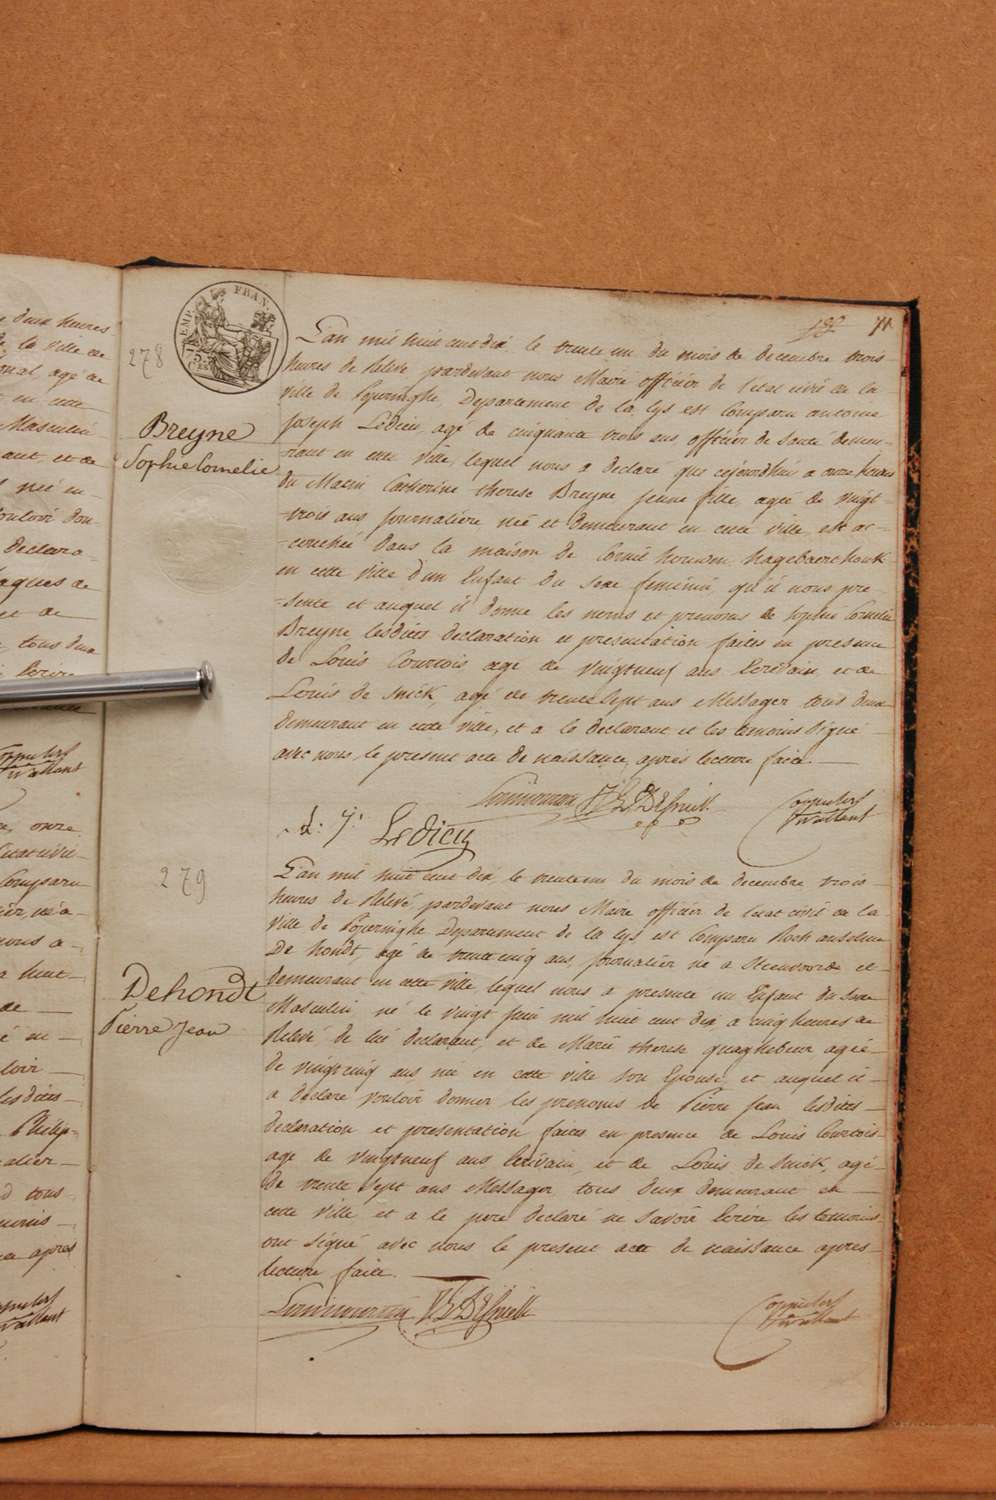 71
278
Breyne
Sophie Cornelie
EMP. FRAN.
L'an mil huit cent dix le trente un du mois de decembre trois
heures de Relevé pardevant nous Maire officier de l'etat civil de la
ville de Poperinghe, Departement de la Lys est Comparu antoine
Joseph Ledieu agé de cinquante trois ans, officier de Santé demeu-
rant en cette ville, lequel nous a declaré que cejourdhui a onze heures
du Matin Catherine therese Breyne jeune fille, agée de vingt
-trois ans Journalière née et demeurant en cette ville, est ac-
-couchée dans la maison de Cornil
en cette ville d'un Enfant du Sexe feminin qu'il nous pre
-sente et auquel il donne les noms et prenoms de Sophie Cornelie
Breyne lesdites declaration et presentation faites en presence
de Louis Courtois agé de vingtneuf ans Ecrivain, et de
Louis de Snick, agé de trente Sept ans Messager tous deux
demeurant en cette ville, et a le declarant et les temoins Signé
avec nous, le present acte de naissance, après lecture faite.
a: j: Ledieu
279
Dehondt
Pierre Jean
L'an mil huit cent dix le trente un du mois de decembre trois
heures de Relevé pardevant nous Maire officier de l'etat civil de la
ville de Poperinghe Departement de la Lys est Comparu Roch anselme
De hondt, agé de trente cinq ans, Journalier né a Steenvoorde et
demeurant en cette ville lequel nous a presenté un Enfant du Sexe
Masculin né le vingt Juin mil huit cent dix a cinq heures de
Relevé de lui declarant, et de Marie therese quaghebeur, agée
de vingt cinq ans née en cette ville Son Epouse, et auquel il
a declaré vouloir donner les prenoms de Pierre Jean lesdites
declaration et presentation faites en presence de Louis Courtois
agé de vingtneuf ans Ecrivain, et de Louis de Snick, agé
de trente Sept ans Messager tous deux demeurant en
cette ville et a le pere declaré ne Savoir Ecrire les temoins
ont Signé avec nous le present acte de naissance après
lecture faite.